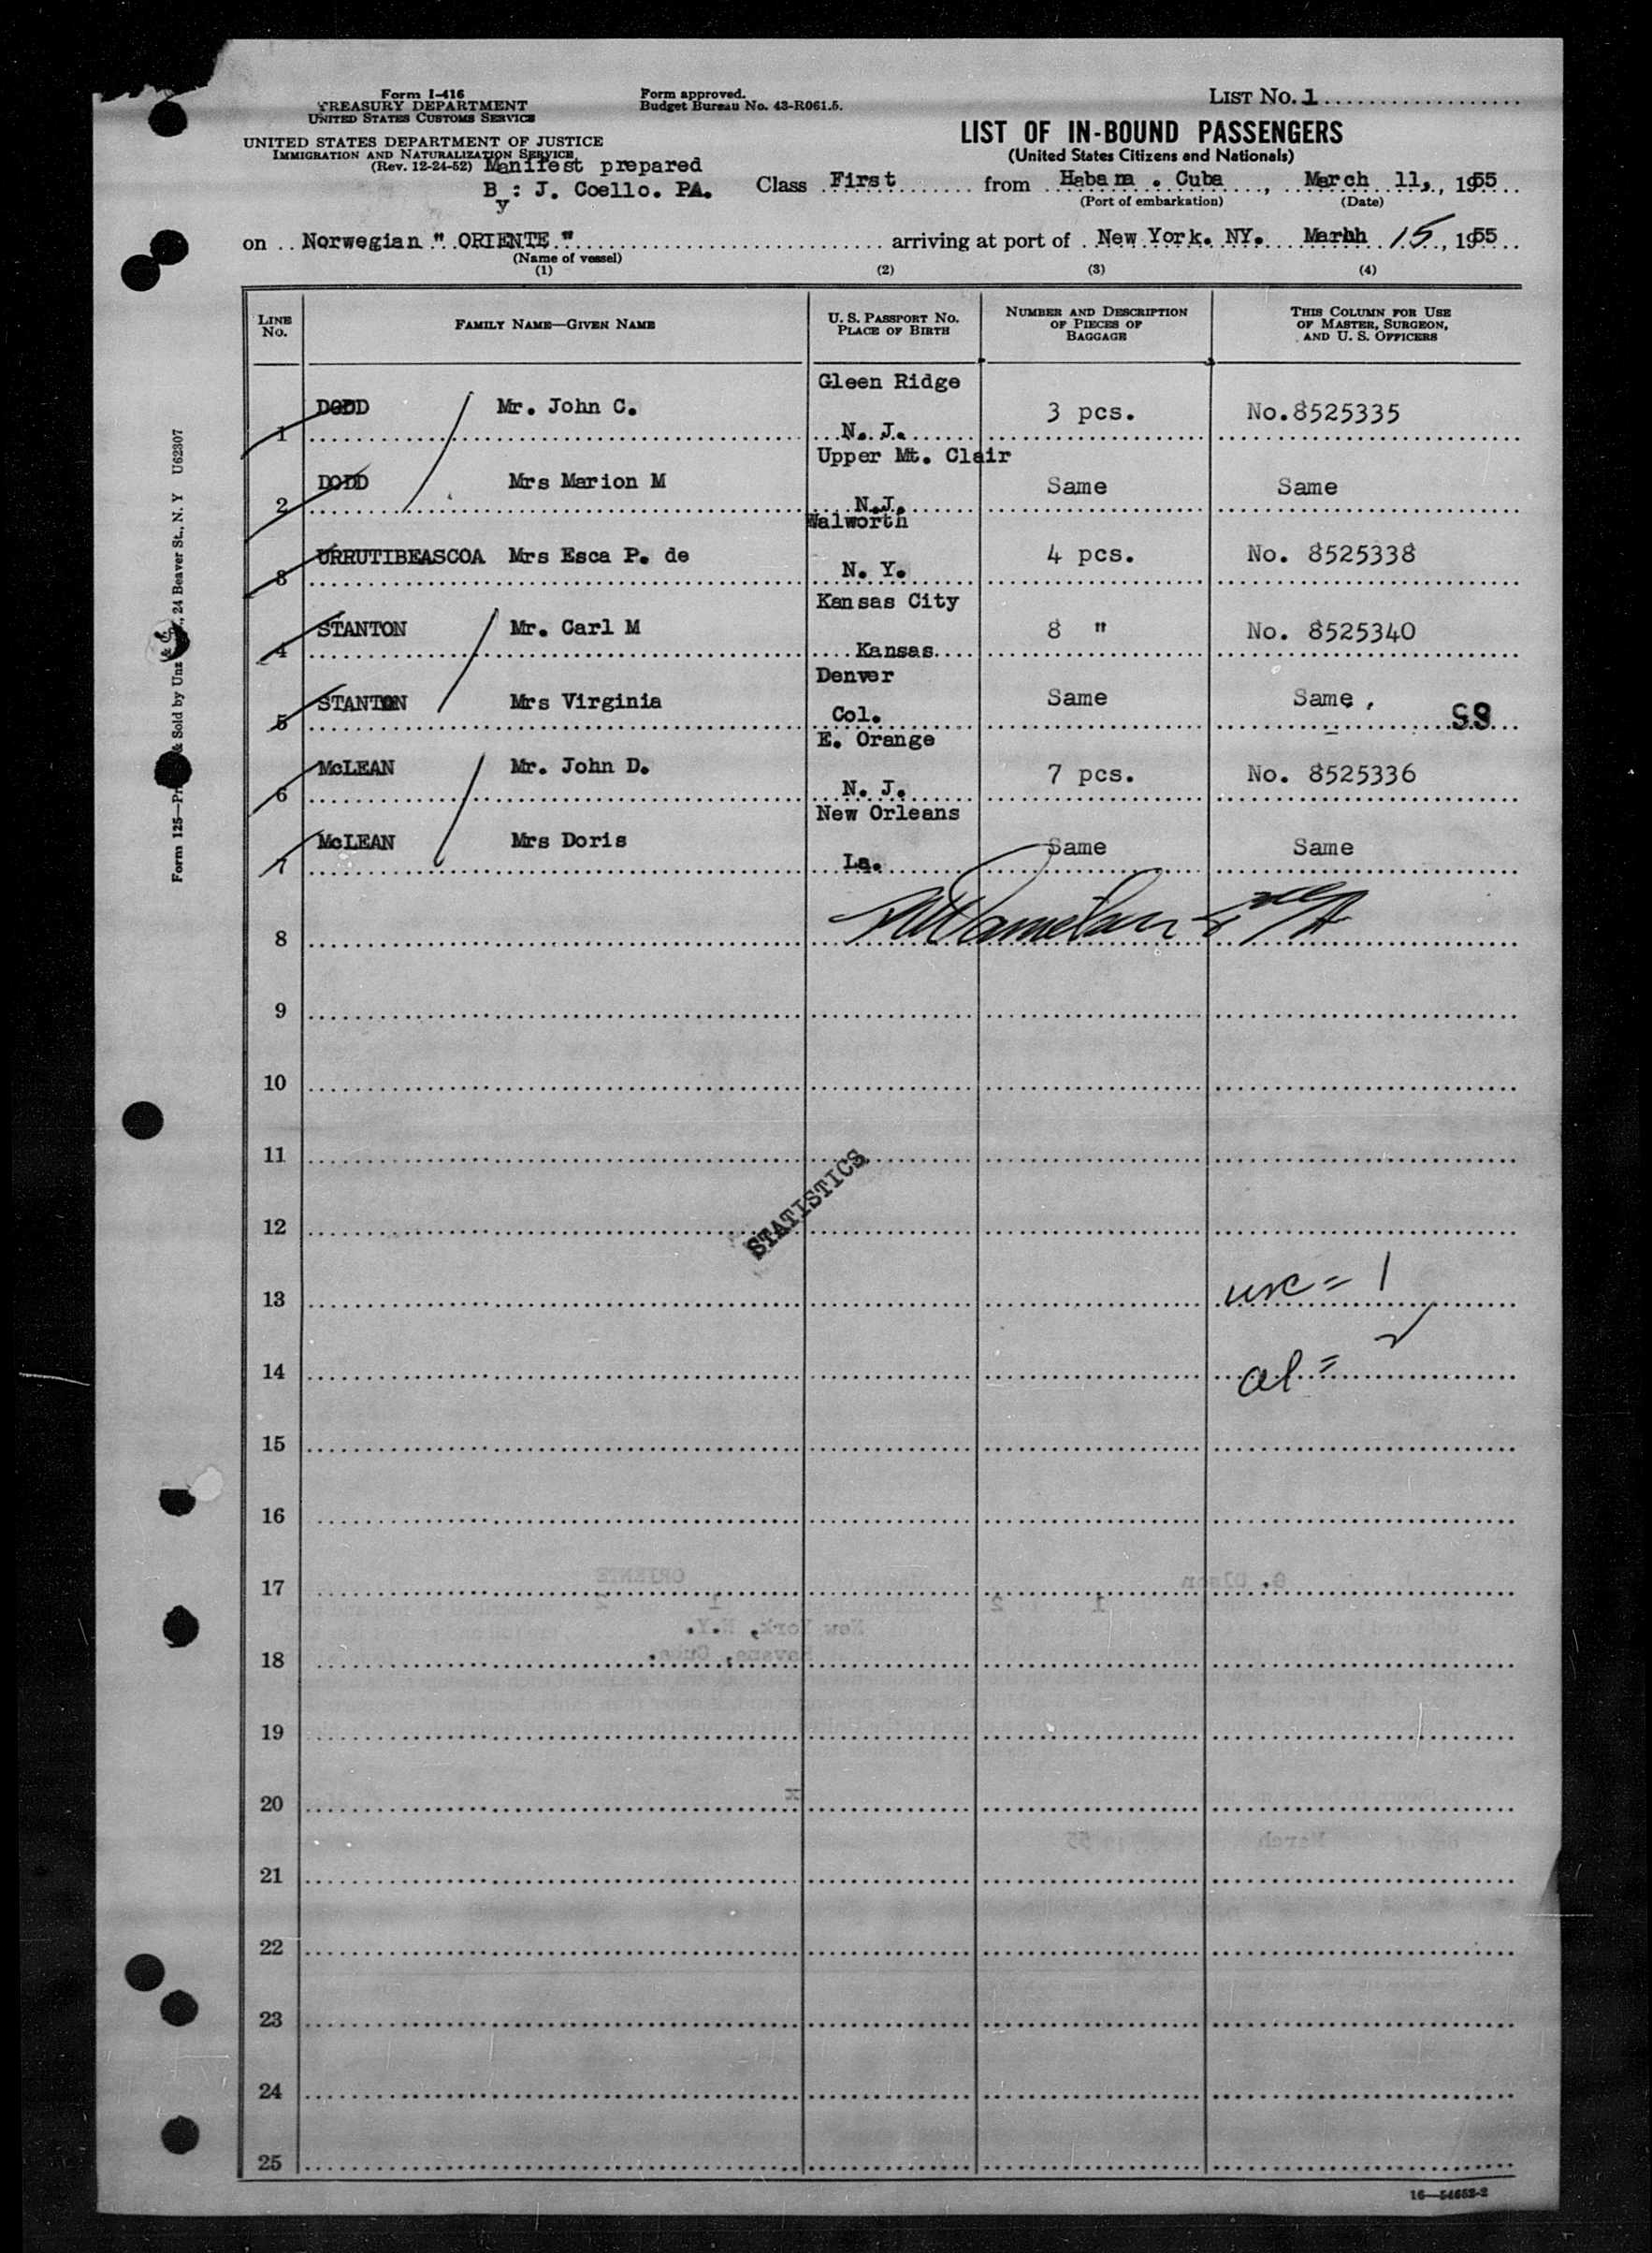 Form I-416
TREASURY DEPARTMENT
UNITED STATES CUSTOMS SERVICE
UNITED STATES DEPARTMENT OF JUSTICE
IMMIGRATION AND NATURALIZATION SERVICE
(Rev. 12-24-52) Manifest prepared
By: J. Coello. PA.
Form approved.
Budget Bureau No. 43-R061.5.
LIST No. 1
LIST OF IN-BOUND PASSENGERS
(United States Citizens and Nationals)
Class First from Habana . Cuba, March 11, 1955
(Port of embarkation) (Date)
on Norwegian " ORIENTE " arriving at port of New York. NY. Marhh 15, 1955
(Name of vessel)
(1) (2) (3) (4)
LINE No. FAMILY NAME—GIVEN NAME U. S. PASSPORT No. PLACE OF BIRTH NUMBER AND DESCRIPTION OF PIECES OF BAGGAGE THIS COLUMN FOR USE OF MASTER, SURGEON, AND U. S. OFFICERS
1 DODD Mr. John C. Gleen Ridge N. J. 3 pcs. No.8525335
2 DODD Mrs Marion M Upper Mt. Clair N.J. Same Same
3 URRUTIBEASCOA Mrs Esca P. de Walworth N. Y. 4 pcs. No. 8525338
4 STANTON Mr. Carl M Kansas City Kansas 8 " No. 8525340
5 STANTON Mrs Virginia Denver Col. Same Same.
6 McLEAN Mr. John D. E. Orange N. J. 7 pcs. No. 8525336
7 McLEAN Mrs Doris New Orleans La. Same Same
8
9
10
11
STATISTICS
12
13 usc = 1
14 al = 2
15
16
17
18
19
20
21
22
23
24
25
16—54652-2
Form 125— & Sold by Unz & Co., 24 Beaver St., N. Y U62307